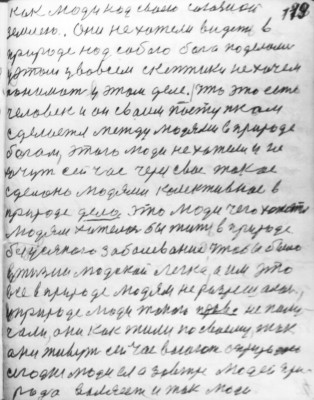 179
как люди над своею головной
землею. Они не хотели видеть в
природе над собою бога
и этом вовсем скептики не хочем
понимать в этом деле, что это есть
человек и он своим поступком
сделается между людями в природе
богом, этого люди не хотели и не
хочут сейчас через свое такое
сделано людями колективное в
природе дело. Это люди чего
людям хотелось бы жить в природе
без всякого заболевания чтобы было
в жизни людской легко, а им это
все в природе людям не разрешалось.
в природе люди такого право не полу-
чали, они как жили по своему так
они живут сейчас
сегодня люди а завтра людей при-
рода валяет и так люди